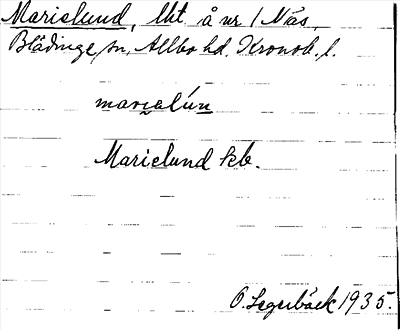 Marielund, lht å nr 1 Näs,
Blädinge sn, Allbo hd. Kronob. l.
marɩalún
Marielund kb.
O. Legerbäck 1935.